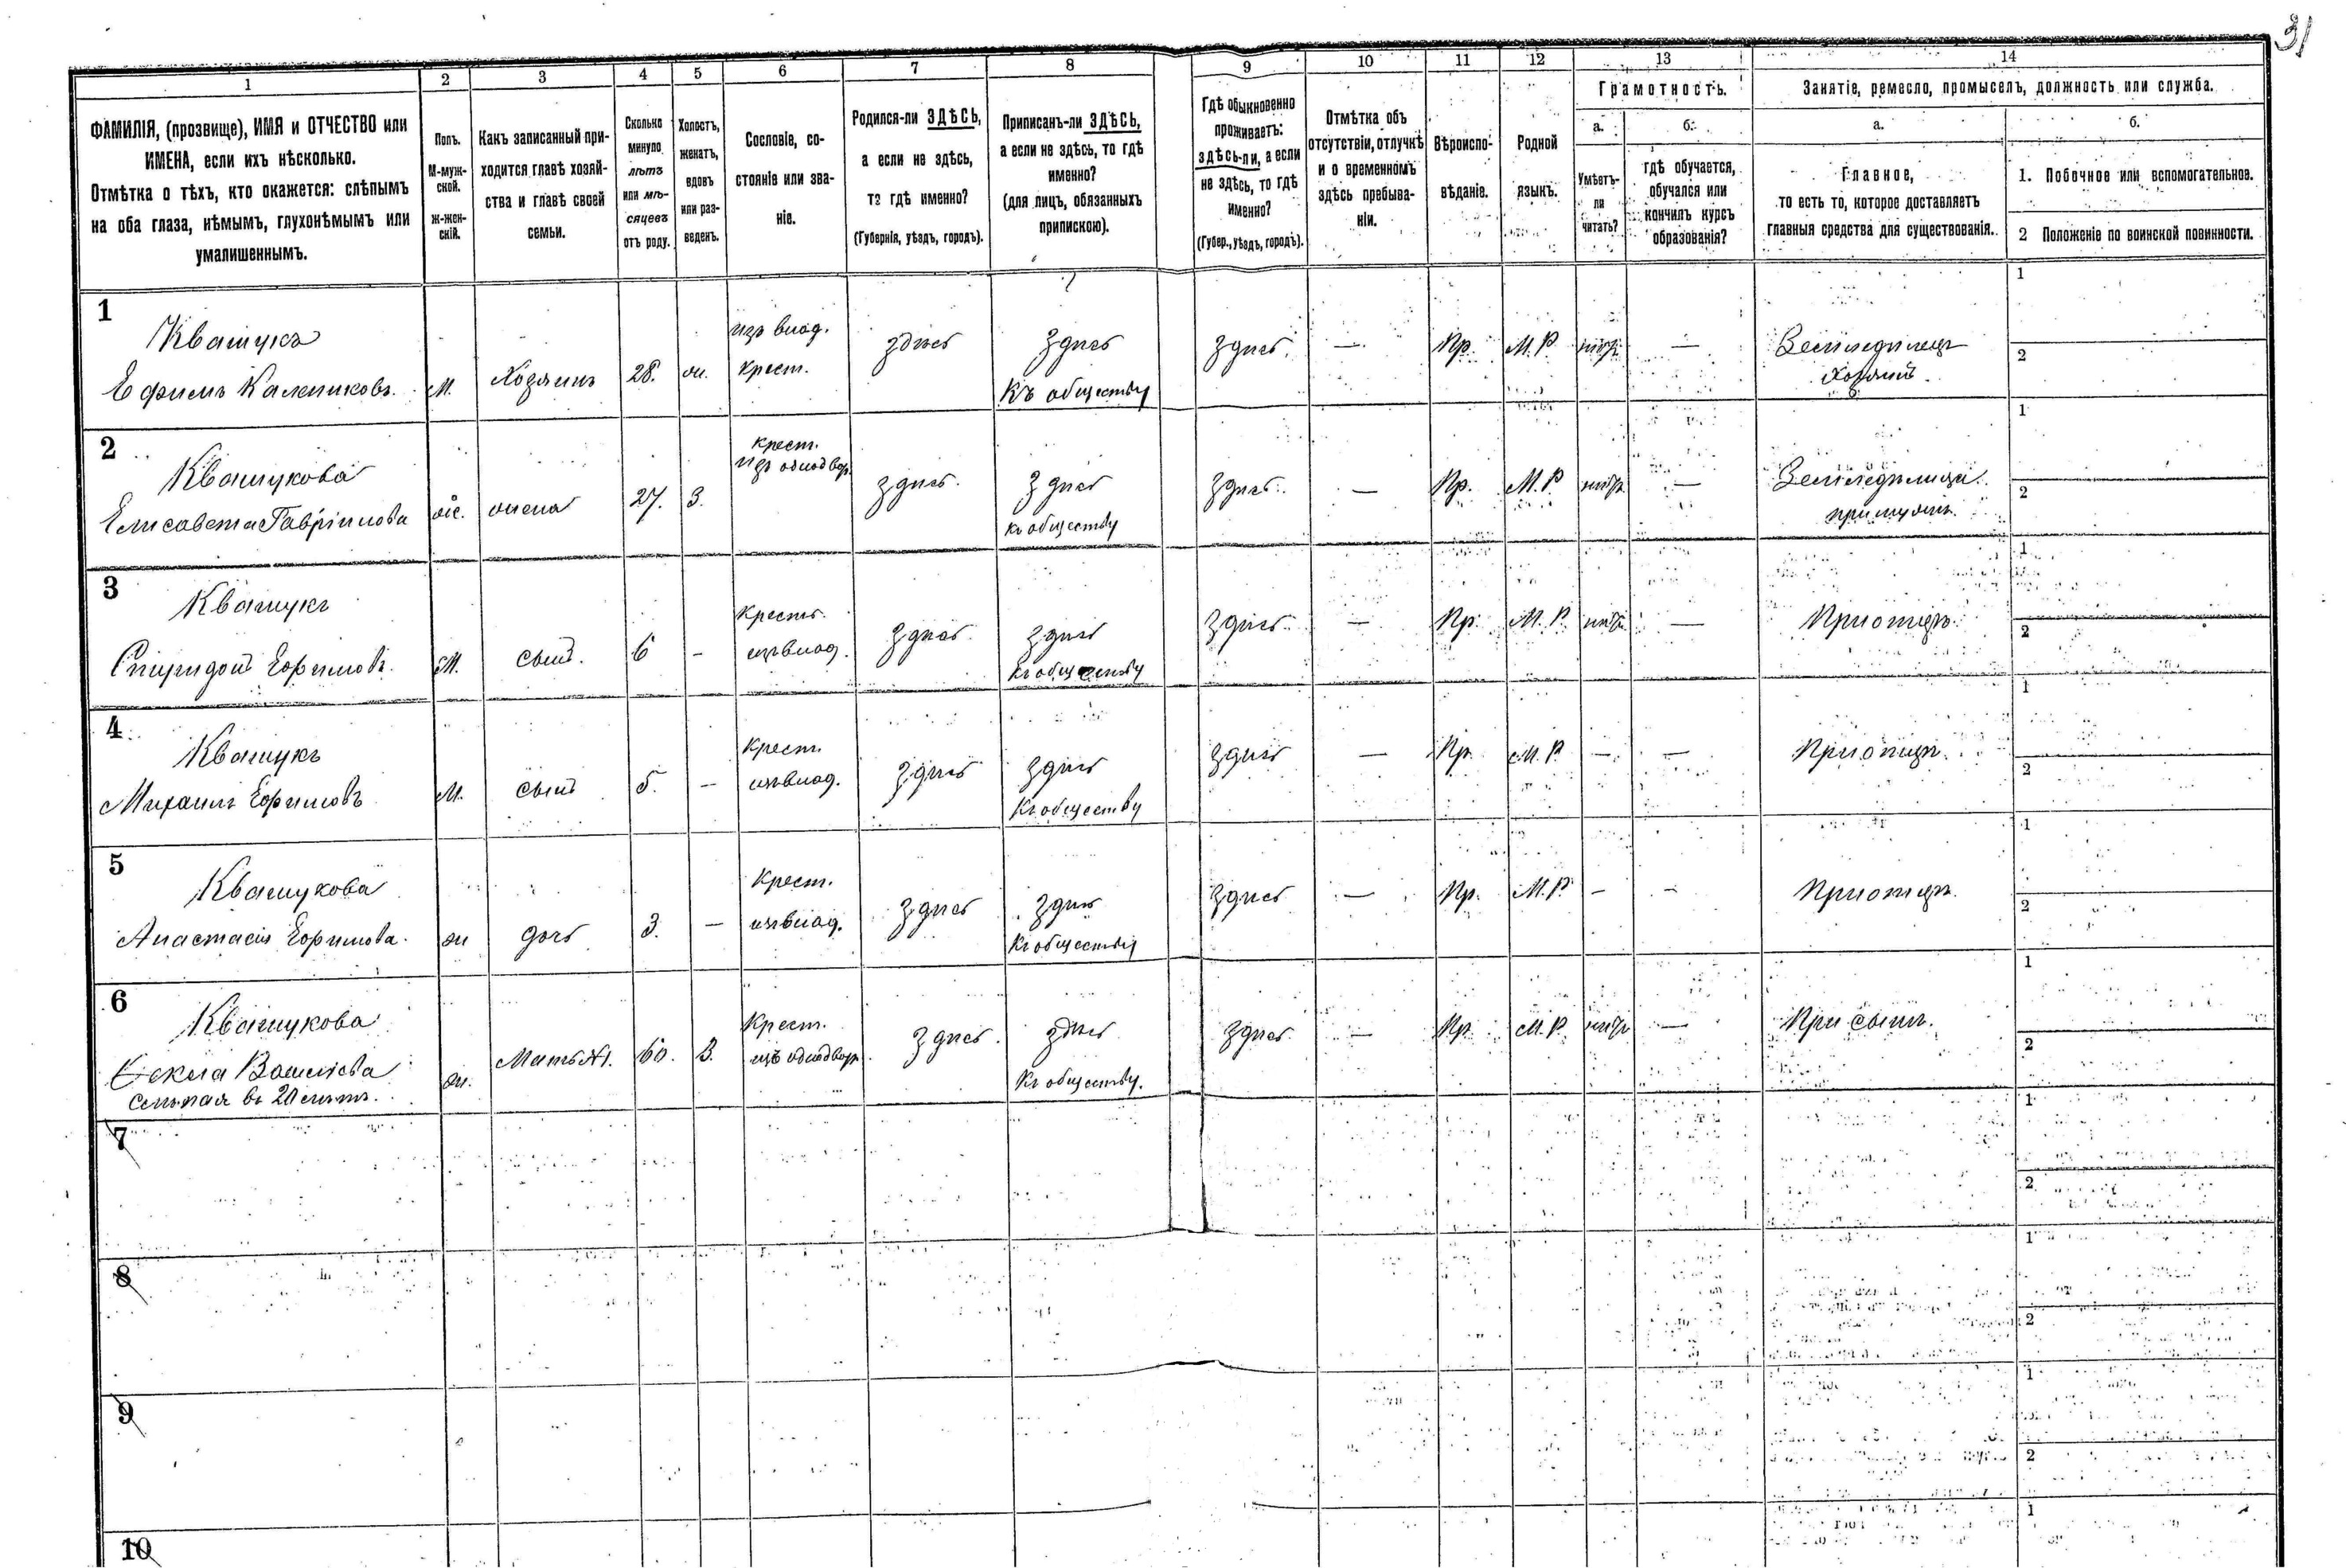 31
1 2 3 4 5 6 7 8 9 10 11 12 13 14
ФАМИЛІЯ, (прозвище), ИМЯ и ОТЧЕСТВО или
ИМЕНА, если ихъ нѣсколько.
Отмѣтка о тѣхъ, кто окажется: слѣпымъ
на оба глаза, нѣмымъ, глухонѣмымъ или
умалишеннымъ.
Полъ.
М-муж-
ской.
Ж-жен-
скій.
Какъ записанный при-
ходится главѣ хозяй-
ства и главѣ своей
семьи.
Сколько
минуло
лѣтъ
или мѣ-
сяцевъ
отъ роду.
Холостъ,
женатъ,
вдовъ
или раз-
веденъ.
Сословіе, со-
стояніе или зва-
ніе.
Родился-ли ЗДѢСЬ,
а если не здѣсь,
то гдѣ именно?
(Губернія, уѣздъ, городъ).
Приписанъ-ли ЗДѢСЬ,
а если не здѣсь, то гдѣ
именно?
(для лицъ, обязанныхъ
припискою).
Гдѣ обыкновенно
проживаетъ:
здѣсь-ли, а если
не здѣсь, то гдѣ
именно?
(Губер., уѣздъ, городъ).
Отмѣтка объ
отсутствіи, отлучкѣ
и о временномъ
здѣсь пребыва-
ніи.
Вѣроиспо-
вѣданіе.
Родной
языкъ.
Грамотность.
а.
Умѣетъ-
ли
читать?
б.
гдѣ обучается,
обучался или
кончилъ курсъ
образованія?
Занятіе, ремесло, промыселъ, должность или служба.
а.
Главное,
то есть то, которое доставляетъ
главныя средства для существованія.
б.
1. Побочное или вспомогательное.
2 Положеніе по воинской повинности.
1
Квашукъ
Ефимъ Калениковъ.
М. Хозяинъ 28. ж.
изъ влад.
крест.
здѣсь
здѣсь
къ обществу
здѣсь. — Пр. М. Р. —
Земледѣлецъ
хозяинъ.
1
2
2
Квашукова
Елисавета Гаврiилова
ж. жена 27. З.
крест.
изъ однодвор.
здѣсь.
здѣсь
къ обществу
здѣсь. — Пр. М. Р —
1
2
3
Квашукъ
Спиридонъ Ефимовъ.
М. сынъ. 6 -
крест.
изъ влад.
здѣсь.
здѣсь
къ обществу
здѣсь. — Пр. М. Р. —
При отцѣ.
1
2
4
Квашукъ
Михаилъ Ефимовъ
М. сынъ 5. —
крест.
изъ влад.
здѣсь
здѣсь
къ обществу
здѣсь — Пр. М. Р. — —
При отцѣ.
1
2
5
Квашукова
Анастасія Ефимова.
ж дочь 3. —
крест.
изъ влад.
здѣсь
здѣсь
къ обществу
здѣсь — Пр. М. Р. — -
При отцѣ.
1
2
6
Квашукова
Васильева
Слѣпая въ 20 лѣтъ.
ж. Мать №1. 60. В.
крест.
изъ однодвор.
здѣсь.
здѣсь
къ обществу.
здѣсь. — Пр. М. Р. —
При сынѣ.
1
2
7
1
2
8
1
2
9
1
2
10
1